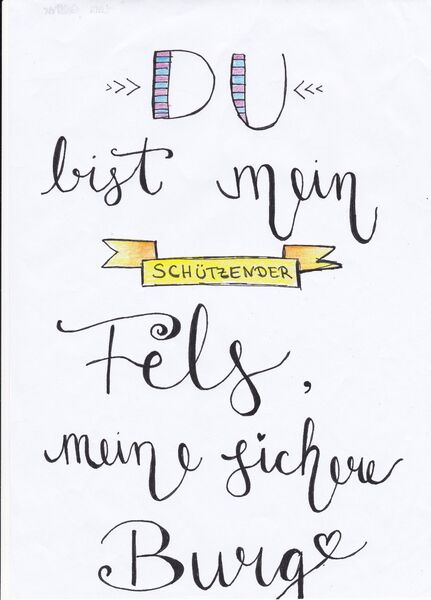 >>> DU <<<
bist mein
SCHÜTZENDER
Fels,
meine sichere
Burg